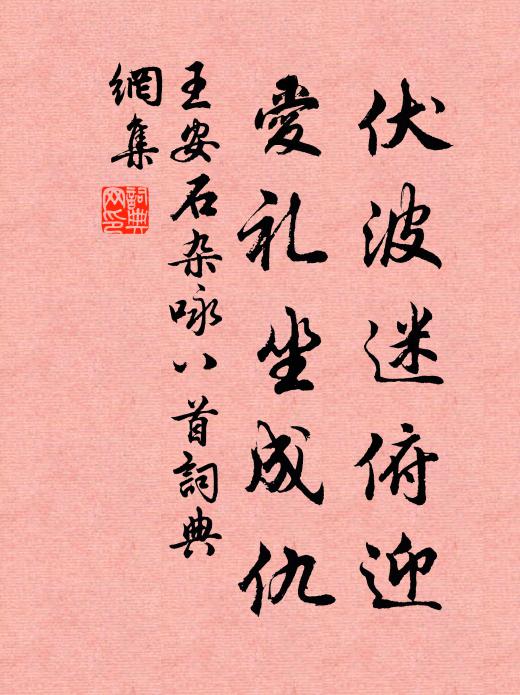 伏波迷俯迎
愛礼坐成仇
王安石杂咏八首詞典
網集
詞典
网印